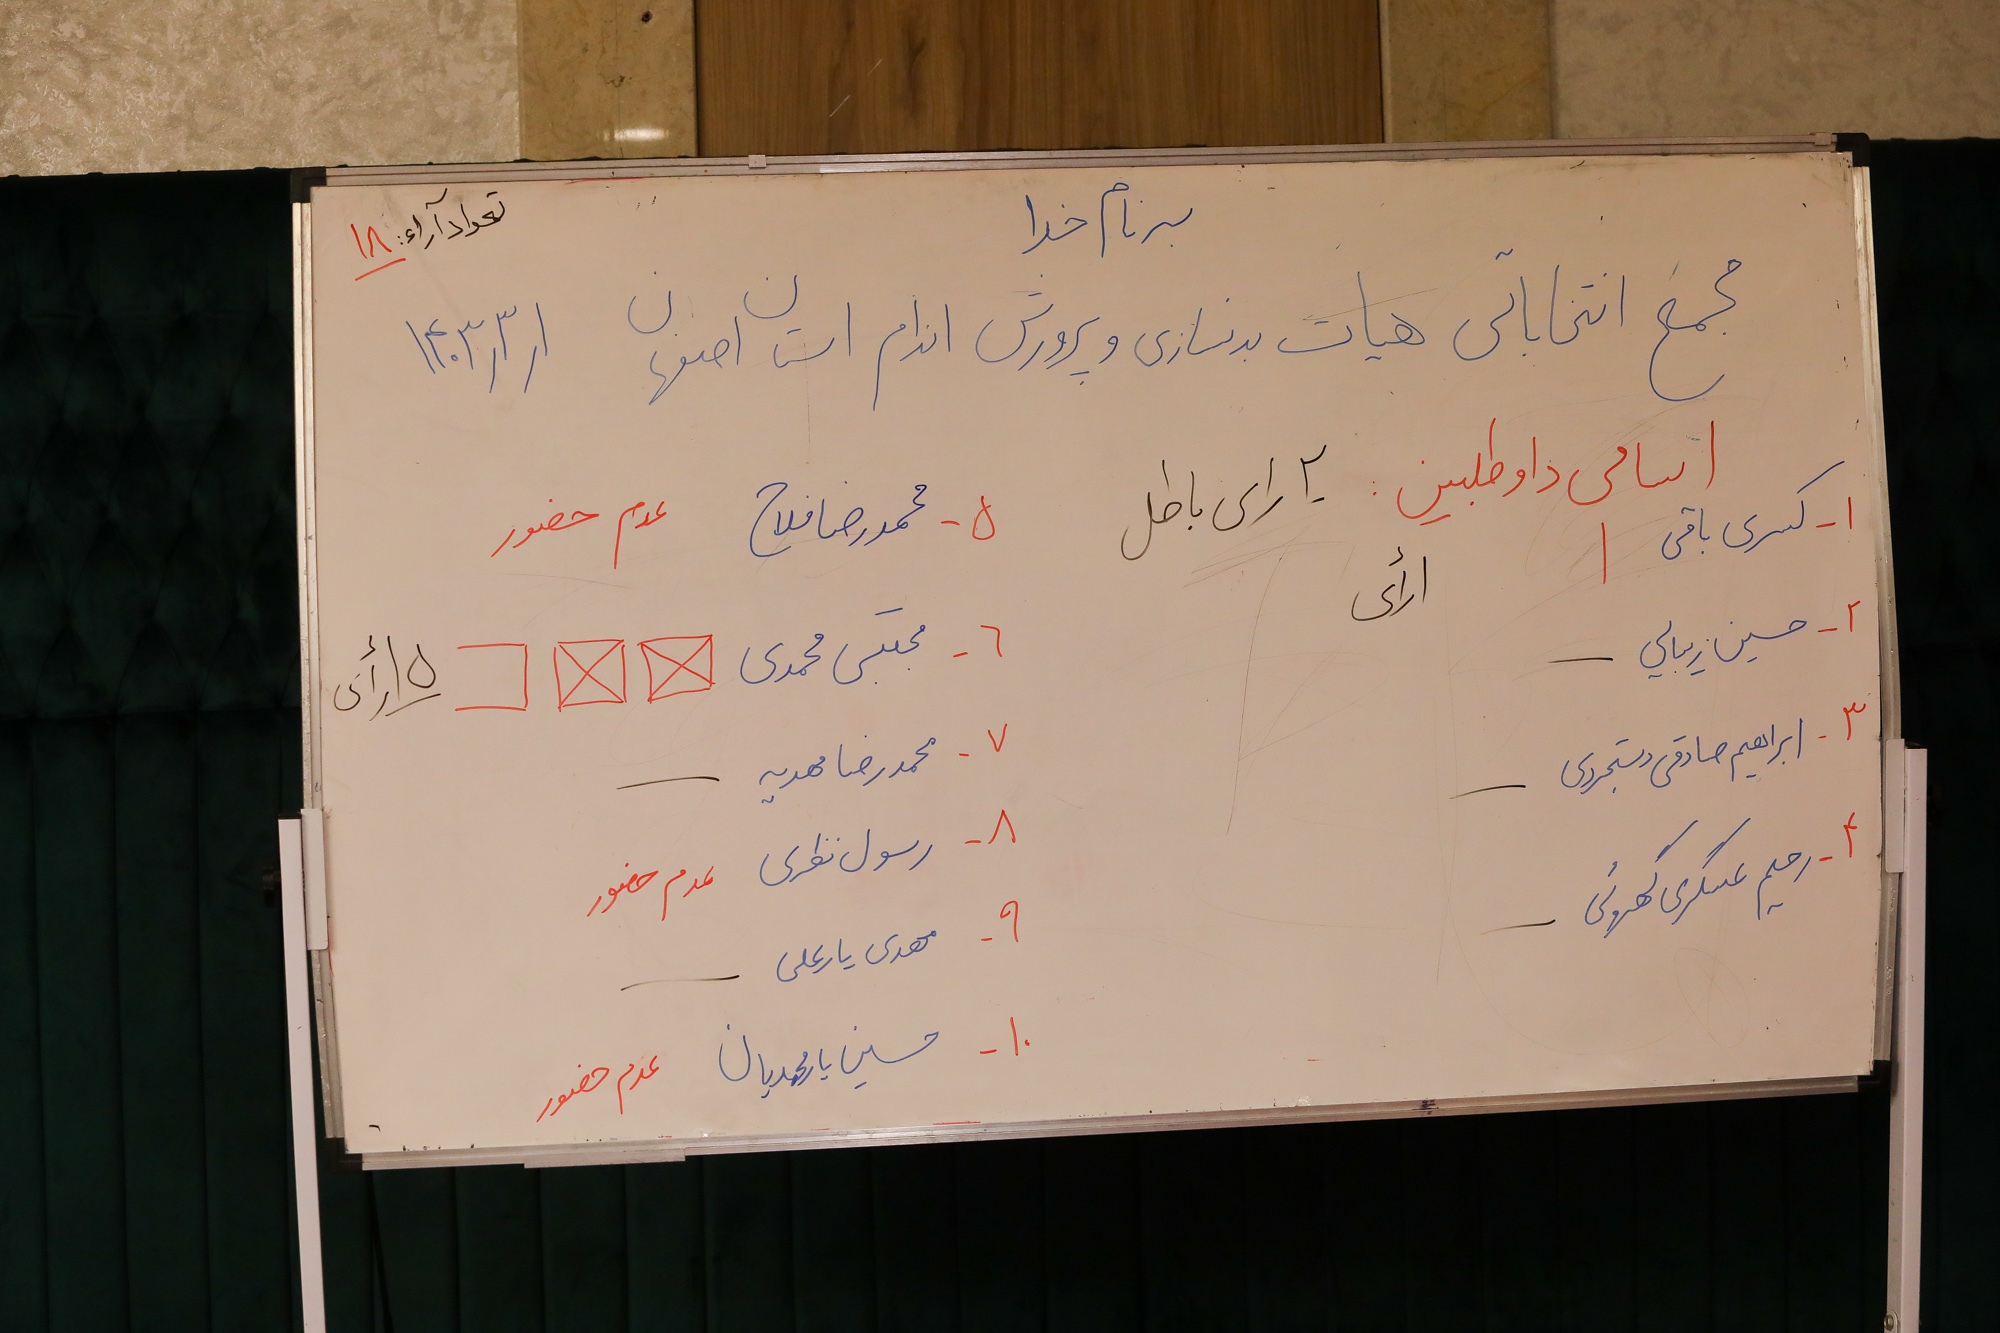 به نام خدا
تعداد آراء: ۱۸
مجمع انتخاباتی هیات بدنسازی و پرورش اندام استان اصفهان ۱۴۰۳/۳/۱
اسامی داوطلبین: ۲ رای باطل
۱- کسری باقی ۱ رأی
۲- حسین زیبائی —
۳- ابراهیم صادقی دستجردی —
۴- رحیم عسگری کهروئی —
۵- محمدرضا فلاح عدم حضور
۶- مجتبی محمدی ۱۵ رأی
۷- محمدرضا مهدیه —
۸- رسول نظری عدم حضور
۹- مهدی یارعلی —
۱۰- حسین یارمحمدیان عدم حضور